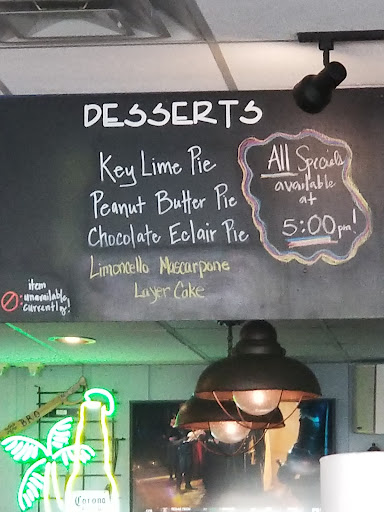 DESSERTS
Key Lime Pie
Peanut Butter Pie
Chocolate Eclair Pie
Limoncello Mascarpone
Layer Cake
ALL Specials
available
at
5:00 pm!
item
: unavailable
currently!
BRB
Corona